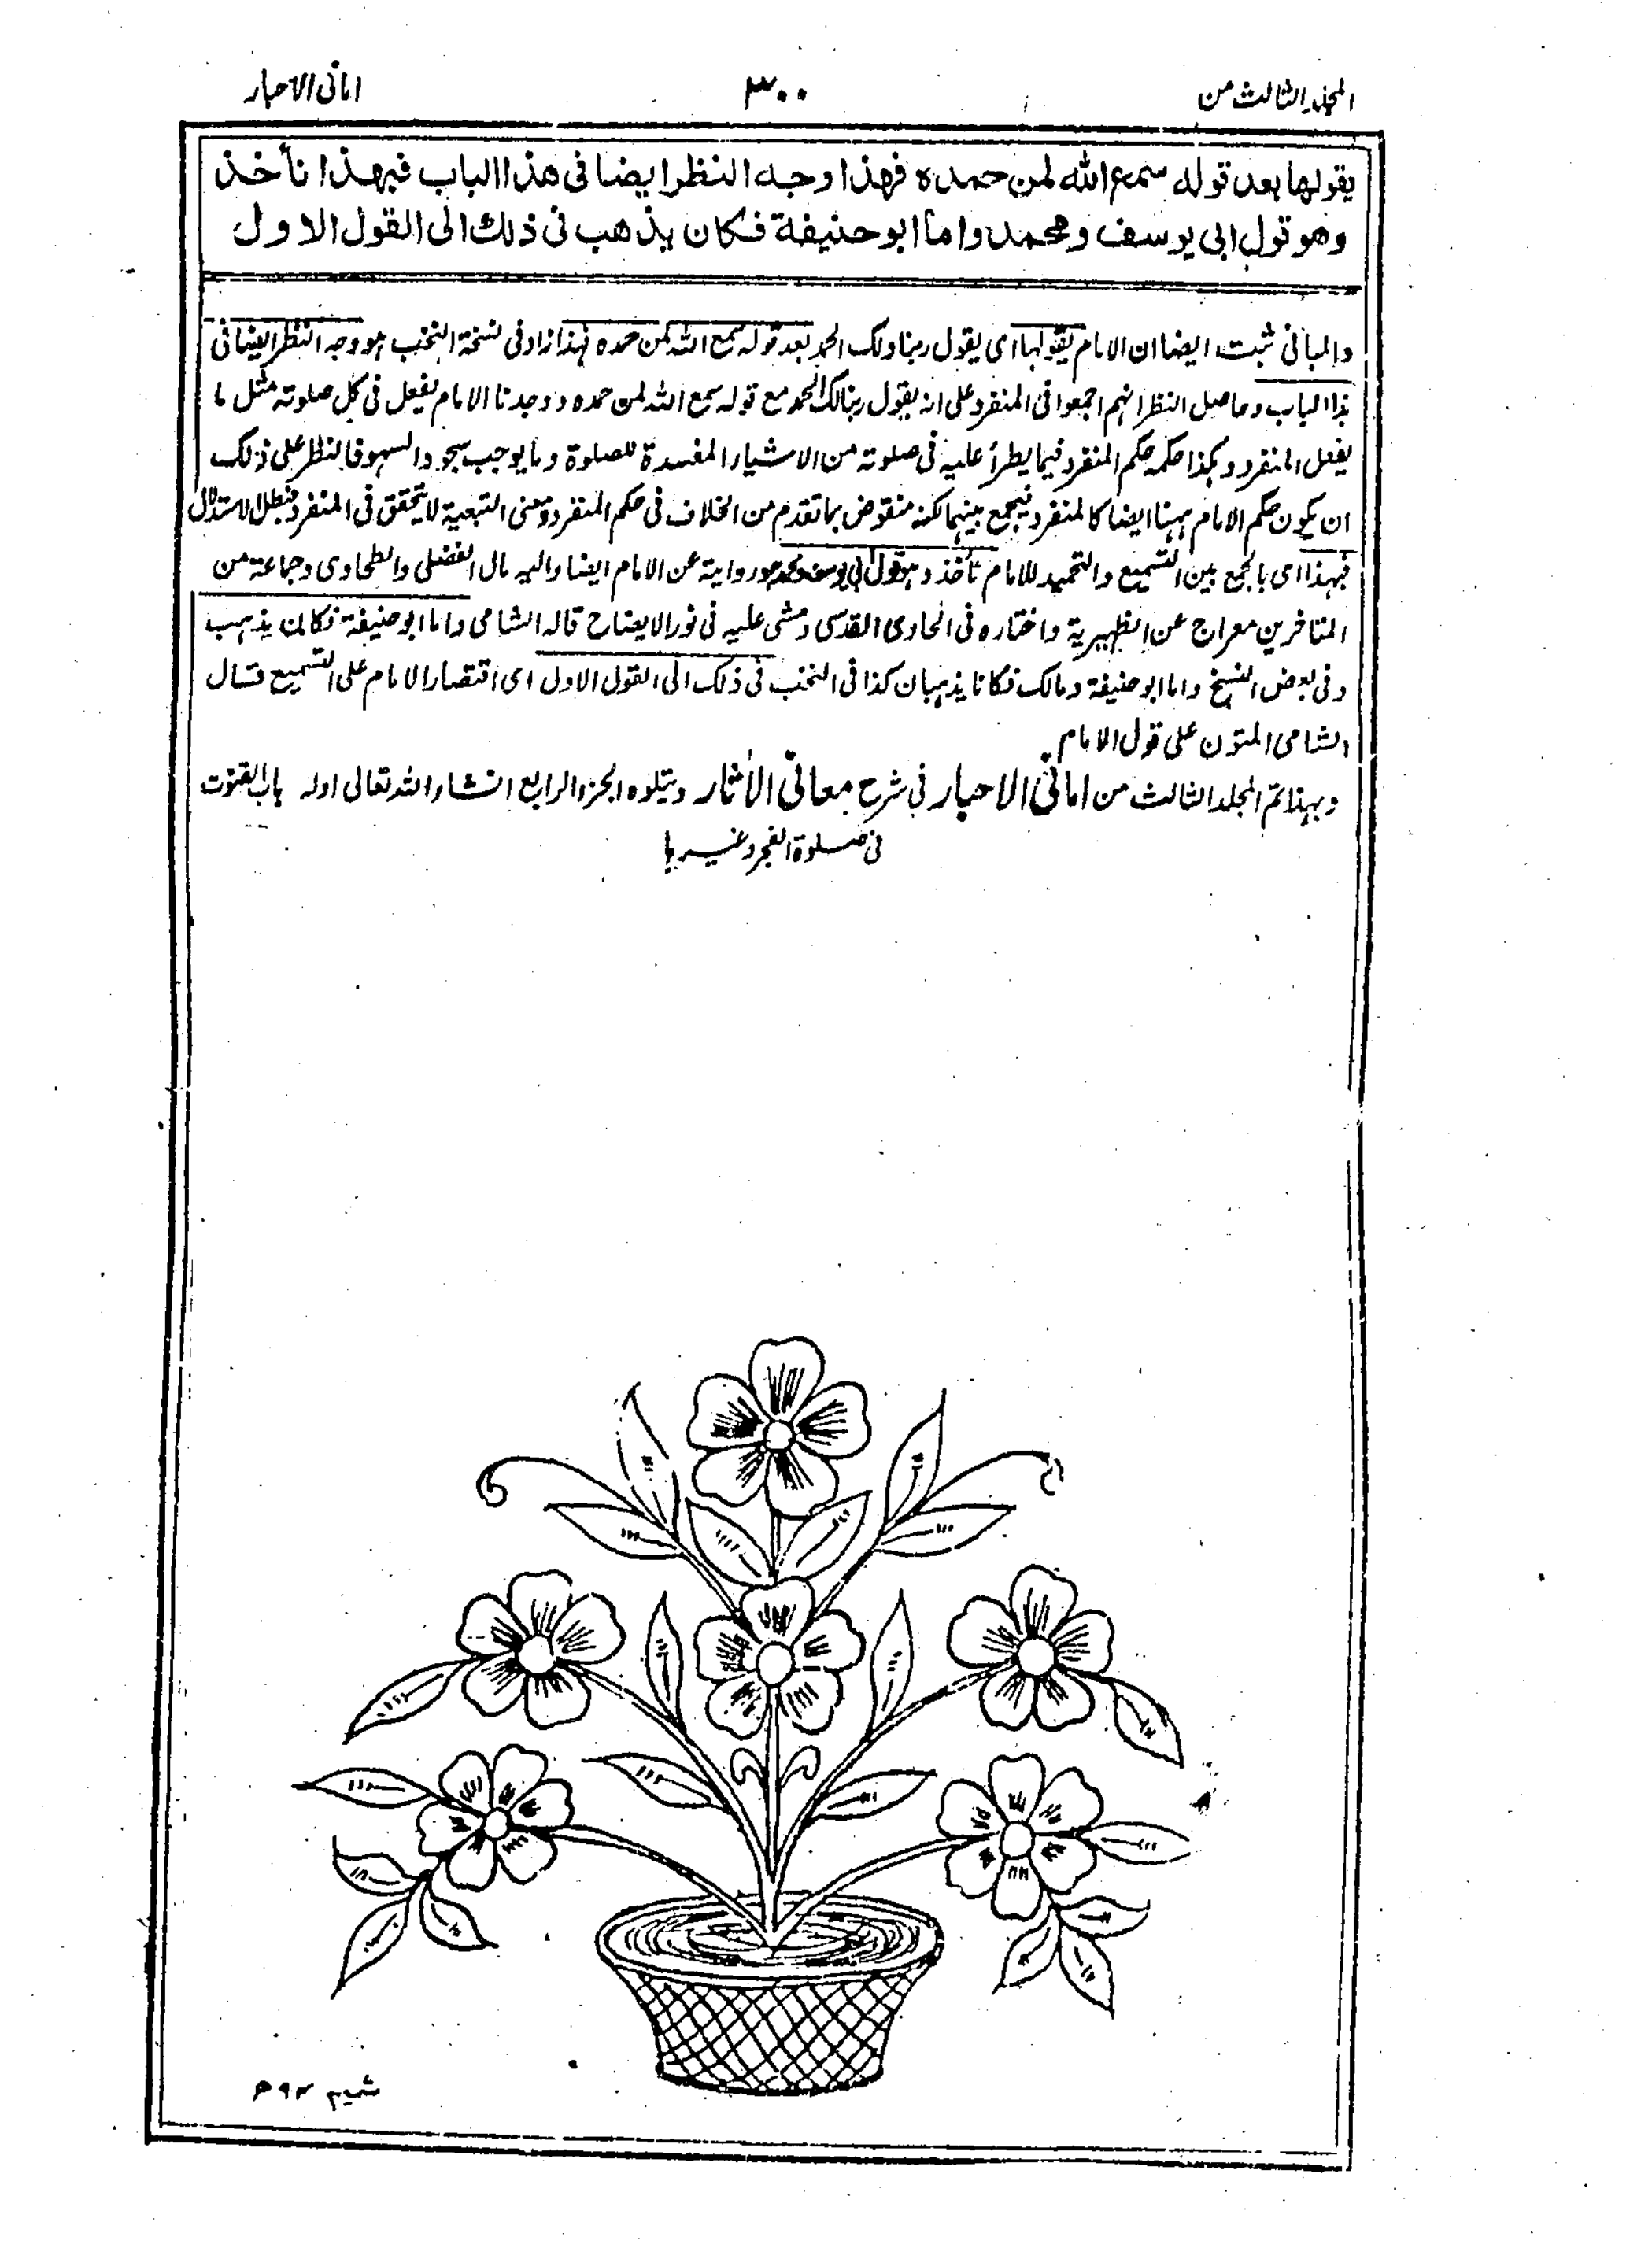 المجلد الثالث من
٣٠٠
امانی الاحبار
يقولها بعد قوله سمع الله لمن حمده فهذا وجه النظر ايضا فى هذا الباب فبهذا نأخذ
وهو قول ابى يوسف ومحمد واما ابو حنيفة فكان يذهب فى ذلك الى القول الاول
والمبانی ثبت ایضا ان الامام یقولها ای یقول ربنا ولک الحمد بعد قوله سمع الله لمن حمده فهذا زاد فی نسخة النخب هو وجه النظر ایضا فی
هذا الباب وحاصل النظر انهم اجمعوا فی المنفرد علی انه یقول ربنا لک الحمد مع قوله سمع الله لمن حمده ووجدنا الامام یفعل فی کل صلوته مثل ما
یفعل المنفرد وهکذا حکمه حکم المنفرد فیما یطرأ علیه فی صلوته من الاشیاء المفسدة للصلوة وما یوجب سجود السهو فالنظر علی ذلک
ان یکون حکم الامام ههنا ایضا کالمنفرد فیجمع بینهما لکنه منقوض بما تقدم من الخلاف فی حکم المنفرد ومعنی التبعیة لا یتحقق فی المنفرد فبطل الاستدلال
فبهذا ای بالجمع بین التسمیع والتحمید للامام نأخذ وهو قول ابی یوسف ومحمد هو روایة عن الامام ایضا والیه مال الفضلی والطحاوی وجماعة من
المتاخرین معراج عن الظهیریة واختاره فی الحاوی القدسی ومشی علیه فی نور الایضاح قاله الشامی واما ابو حنیفة فکان یذهب
وفی بعض النسخ واما ابو حنیفة ومالک فکانا یذهبان کذا فی النخب فی ذلک الی القول الاول ای اقتصار الامام علی التسمیع قال
الشامی المتون علی قول الامام
وبهذا تم المجلد الثالث من امانی الاحبار فی شرح معانی الاٰثار ویتلوه الجزء الرابع انشاء الله تعالی اوله باب القنوت
فی صلوة الفجر وغیرها
شمیم ۹۳ م